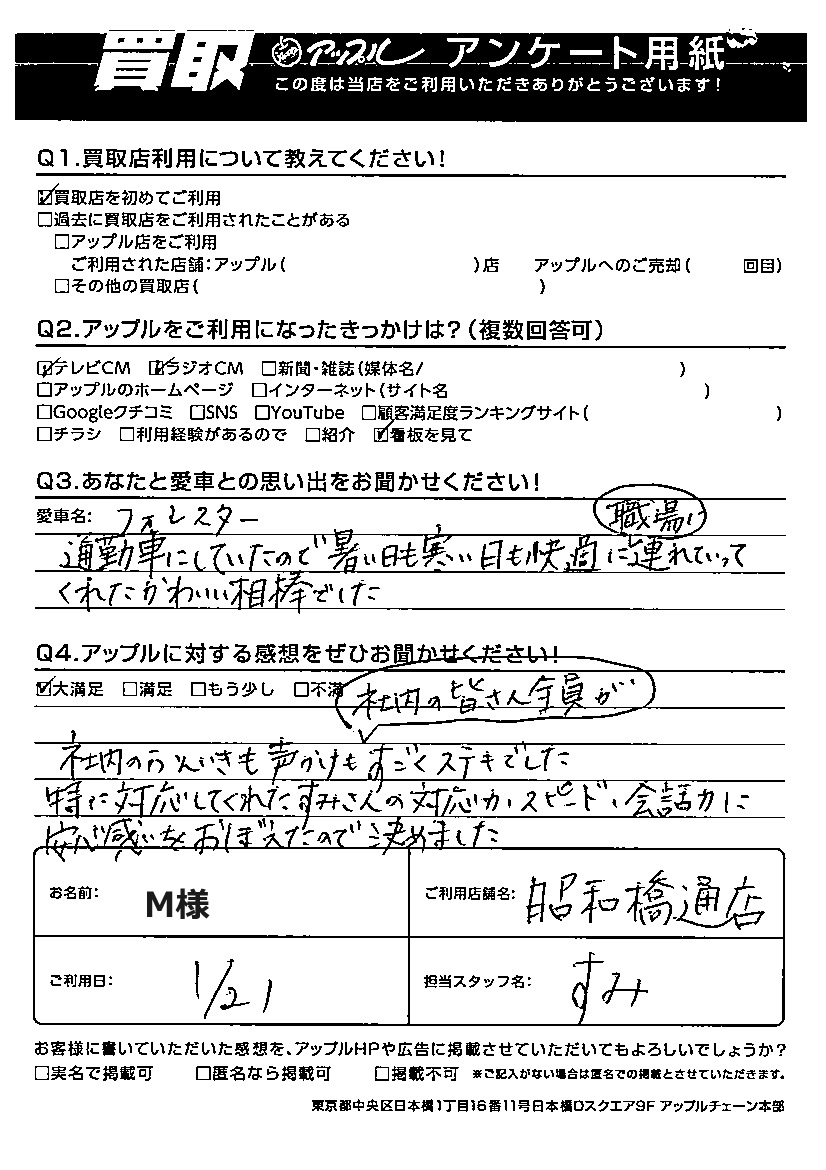 買取 アップル アンケート用紙
この度は当店をご利用いただきありがとうございます!
Q1.買取店利用について教えてください!
☑買取店を初めてご利用
□過去に買取店をご利用されたことがある
□アップル店をご利用
ご利用された店舗:アップル( )店 アップルへのご売却( 回目)
□その他の買取店( )
Q2.アップルをご利用になったきっかけは?(複数回答可)
☑テレビCM ☑ラジオCM □新聞・雑誌(媒体名/ )
□アップルのホームページ □インターネット(サイト名 )
□Googleクチコミ □SNS □YouTube □顧客満足度ランキングサイト( )
□チラシ □利用経験があるので □紹介 ☑看板を見て
Q3.あなたと愛車との思い出をお聞かせください!
愛車名: フォレスター 職場に
通勤車にしていたので暑い日も寒い日も快適に連れていって
くれたかわいい相棒でした
Q4.アップルに対する感想をぜひお聞かせください!
☑大満足 □満足 □もう少し □不満
社内の皆さん全員が
社内のふんいきも声かけもすごくステキでした
特に対応してくれたすみさんの対応力、スピード、会話力に
安心感をおぼえたので決めました
お名前: M様 ご利用店舗名: 昭和橋通店
ご利用日: 1/21 担当スタッフ名: すみ
お客様に書いていただいた感想を、アップルHPや広告に掲載させていただいてもよろしいでしょうか?
□実名で掲載可 □匿名なら掲載可 □掲載不可 ※ご記入がない場合は匿名での掲載とさせていただきます。
東京都中央区日本橋1丁目16番11号日本橋Dスクエア9F アップルチェーン本部